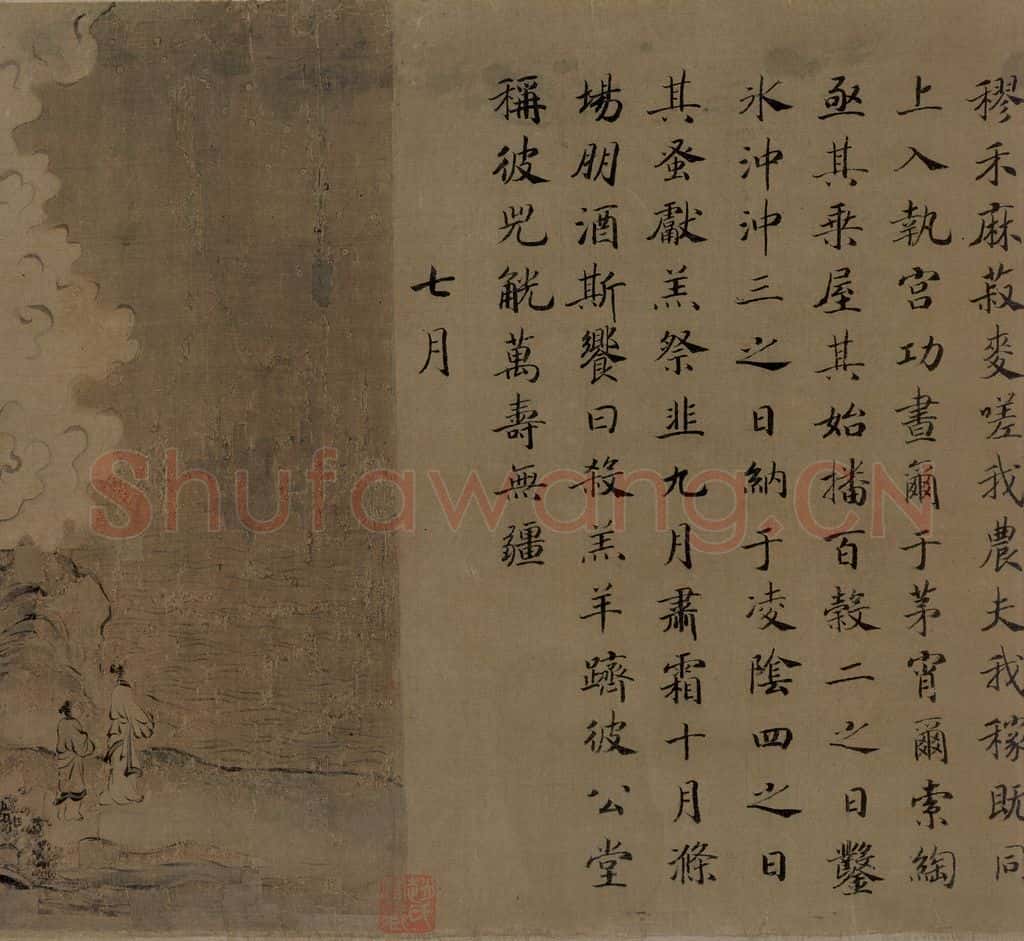 穋禾麻菽麥嗟我農夫我稼既同
上入執宮功晝爾于茅宵爾索綯
亟其乗屋其始播百榖二之日鑿
氷沖沖三之日納于凌陰四之日
其蚤獻羔祭韭九月肅霜十月滌
場朋酒斯饗曰殺羔羊躋彼公堂
稱彼兕觥萬壽無疆
七月
Shufawang.CN